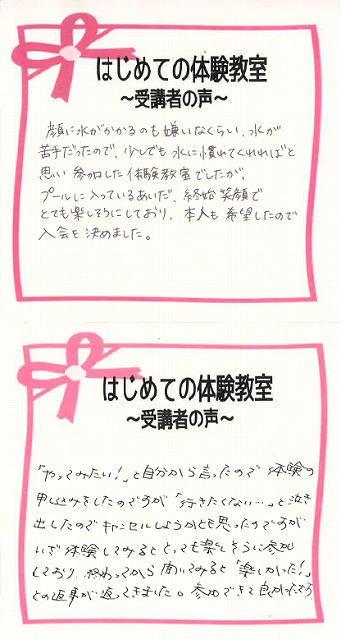 はじめての体験教室
～受講者の声～
顔に水がかかるのも嫌いなくらい、水が
苦手だったので、少しでも水に慣れてくれればと
思い参加した体験教室でしたが、
プールに入っているあいだ、終始笑顔で
とても楽しそうにしており、本人も希望したので
入会を決めました。
はじめての体験教室
～受講者の声～
「やってみたい！」と自分から言ったので体験の
申し込みをしたのですが「行きたくない…」と泣き
出したのでキャンセルしようかとも思ったのですが
いざ体験してみるととっても楽しそうに参加
しており、終わってから聞いてみると「楽しかった！」
との返事が返ってきました。参加できて良かったです